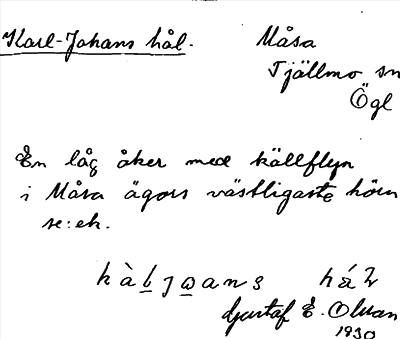 Karl-Johans hål. Måsa
Tjällmo sn
Ögl
En låg åker med källflyn
i Måsa ägors västligaste hörn
se: ek.
Gustaf E. Olsson
1930